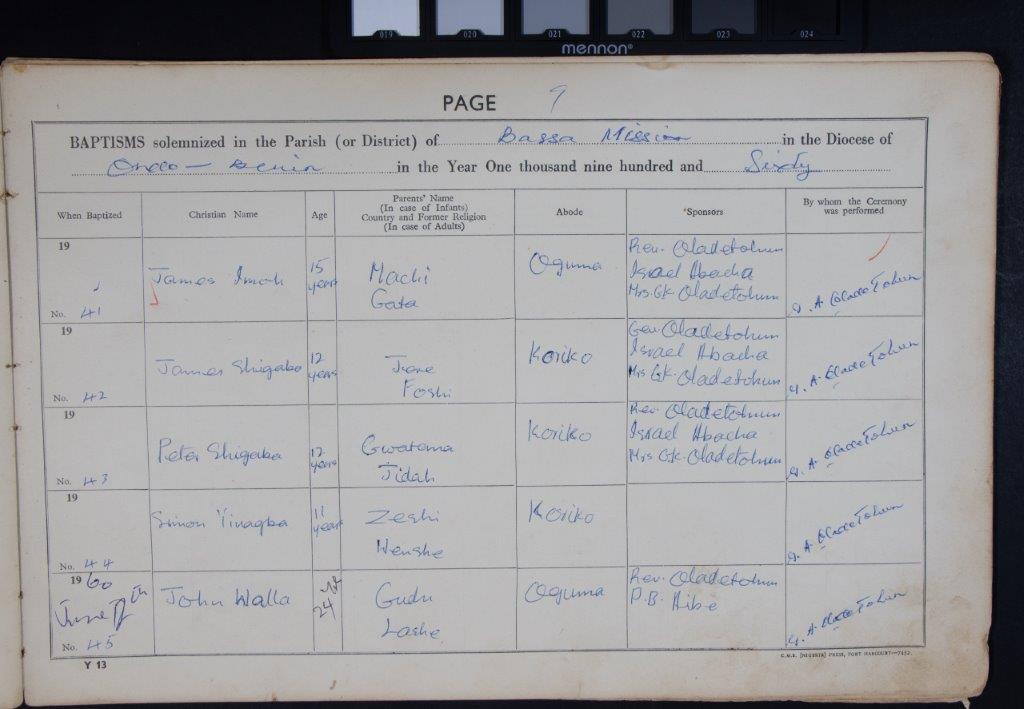 019 020 021 022 023 024
mennon®
PAGE 9
BAPTISMS solemnized in the Parish (or District) of Bassa Mission in the Diocese of
Ondo - Benin in the Year One thousand nine hundred and Sixty
When Baptized
Christian Name
Age
Parents' Name
(In case of Infants)
Country and Former Religion
(In case of Adults)
Abode
Sponsors
By whom the Ceremony
was performed
19
No. 41
James Imoh
15
years
Machi
Gata
Oguma
Rev. Oladetohun
Israel Abacha
Mrs. G.K. Oladetohun
A. Oladetohun
19
No. 42
James Shigaba
12
years
Foshi
Koriko
Rev. Oladetohun
Israel Abacha
Mrs G.K. Oladetohun
A. Oladetohun
19
No. 43
Peter Shigaba
12
years
Gwatama
Jidah
Koriko
Rev. Oladetohun
Israel Abacha
Mrs G.K. Oladetohun
A. Oladetohun
19
No. 44
Simon Yinagba
11
years
Zeshi
Wenshe
Koriko
A. Oladetohun
19 60
June
No. 45
John Walla
24
Gudu
Lashe
Oguma
Rev. Oladetohun
P.B. Aibe
A. Oladetohun
Y 13
C.M.S. (NIGERIA) PRESS, PORT HARCOURT—7452.